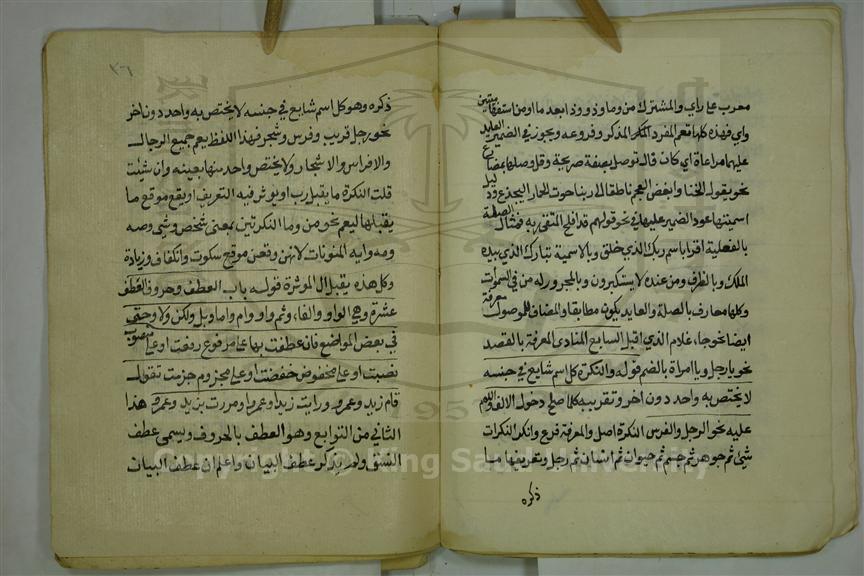 معرب علي راي والمشترك من وما وذو وذا بعد ما او من استفهاميتين
واي فهذه كلها تعم المفرد المذكر وفروعه ويجوز في الضمير العايد
عليها مراعاة اي كان قال توصل بصفة صريحة وقل وصلها بمضارع
نحو يقول الخنا وابغض العجم ناطقا الي ربنا صوت الحمار اليجدع ودليل
اسميتها عود الضمير عليها في نحو قولهم قد افلح المتقي ربه فمثال الصلة
بالفعلية اقرا باسم ربك الذي خلق وبالاسمية تبارك الذي بيده
الملك وبالظرف ومن عنده لا يستكبرون وبالمجرور له من في السموات
وكلها معارف بالصلة والعايد يكون مطابقا والمضاف للموصول معرفة
ايضا نحو جاء غلام الذي اقبل السابع المنادي المعرفة بالقصد
نحو يا رجل ويا امراة بالضم قوله والنكرة كل اسم شايع في جنسه
لا يختص به واحد دون اخر وتقريبه كلما صلح دخول الالف واللام
عليه نحو الرجل والفرس النكرة اصل والمعرفة فرع وانكر النكرات
شي ثم جوهر ثم جسم ثم حيوان ثم انسان ثم رجل وتعريفها ما
ذكره
٣٦
ذكره وهو كل اسم شايع في جنسه لا يختص به واحد دون اخر
نحو رجل قريب وفرس وشجر فهذا اللفظ يعم جميع الرجال
والافراس والاشجار ولا يختص واحد منها بعينه وان شيت
قلت النكرة ما يقبل رب او يوثر فيه التعريف او يقع موقع ما
يقبلها ليعم نحو من وما النكرتين بمعني شخص وشي وصه
ومه وايه المنونات لانهن وقعن موقع سكوت وانكفاف وزيادة
وكل هذه يقبل ال الموثرة قوله باب العطف وحروف العطف
عشرة وهي الواو والفاء وثم واو وام واما وبل ولكن ولا وحتي
في بعض المواضع فان عطفت بها علي مرفوع رفعت او علي منصوب
نصبت او علي مخفوض خفضت او علي مجزوم جزمت تقول
قام زيد وعمرو ورايت زيدا وعمروا ومررت بزيد وعمرو هذا
الثاني من التوابع وهو العطف بالحروف ويسمي عطف
النسق ولم يذكر عطف البيان واعلم ان عطف البيان
Copyright © King Saud University
1957